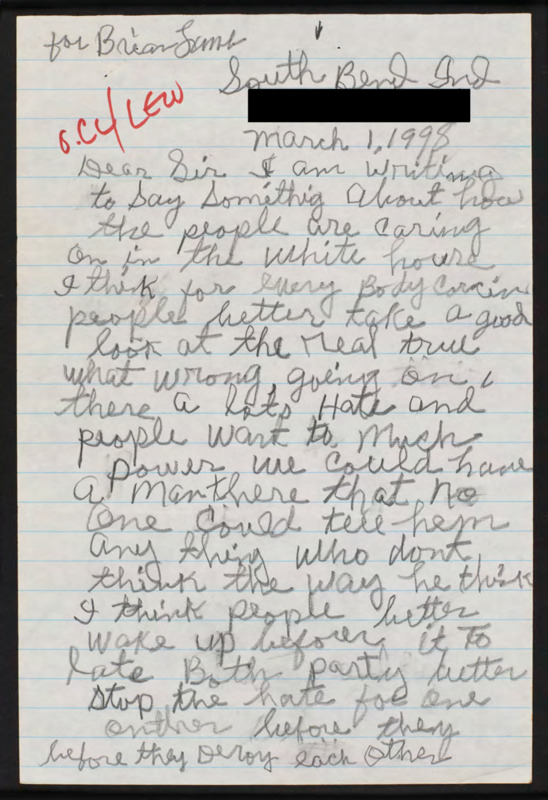 for Brian Lamb
South Bend Ind
O.C./LEW
March 1, 1998
Dear Sir I am writing
to say somithig About how
the people are caring
on in the White house
I think for every Body Corcin
people better take a good
look at the real true
what wrong going on,
there a lots Hate and
people want to Much
power we could have
a Man there that No
One Could tell hem
any thing who dont
think the way he think
I think people better
wake up before it To
late Both party better
stop the hate for one
onther before they
before they Deroy each Other